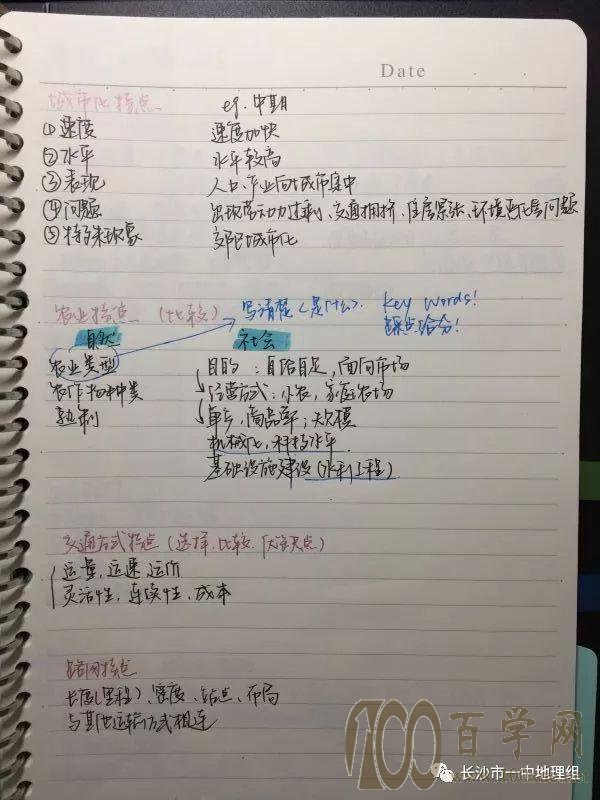 Date
城市化特点 eg. 中期
①速度 速度加快
②水平 水平较高
③表现 人口、产业向城市集中
④问题 出现劳动力过剩、交通拥挤、住房紧张、环境恶化等问题
⑤特殊现象 郊区城市化
农业特点 (比较) 写清楚<是什么>. Key Words!
自然 社会 踩点给分!
农业类型 目的:自给自足,面向市场
农作物种类 经营方式:小农,家庭农场
熟制 单产,商品率;大规模
机械化,科技水平
基础设施建设(水利工程)
交通方式特点(选择、比较、优缺点)
运量,运速,运价
灵活性,连续性,成本
路网特点
长度(里程)、密度、站点、布局
与其他运输方式相连
100百学网
长沙市一中地理组